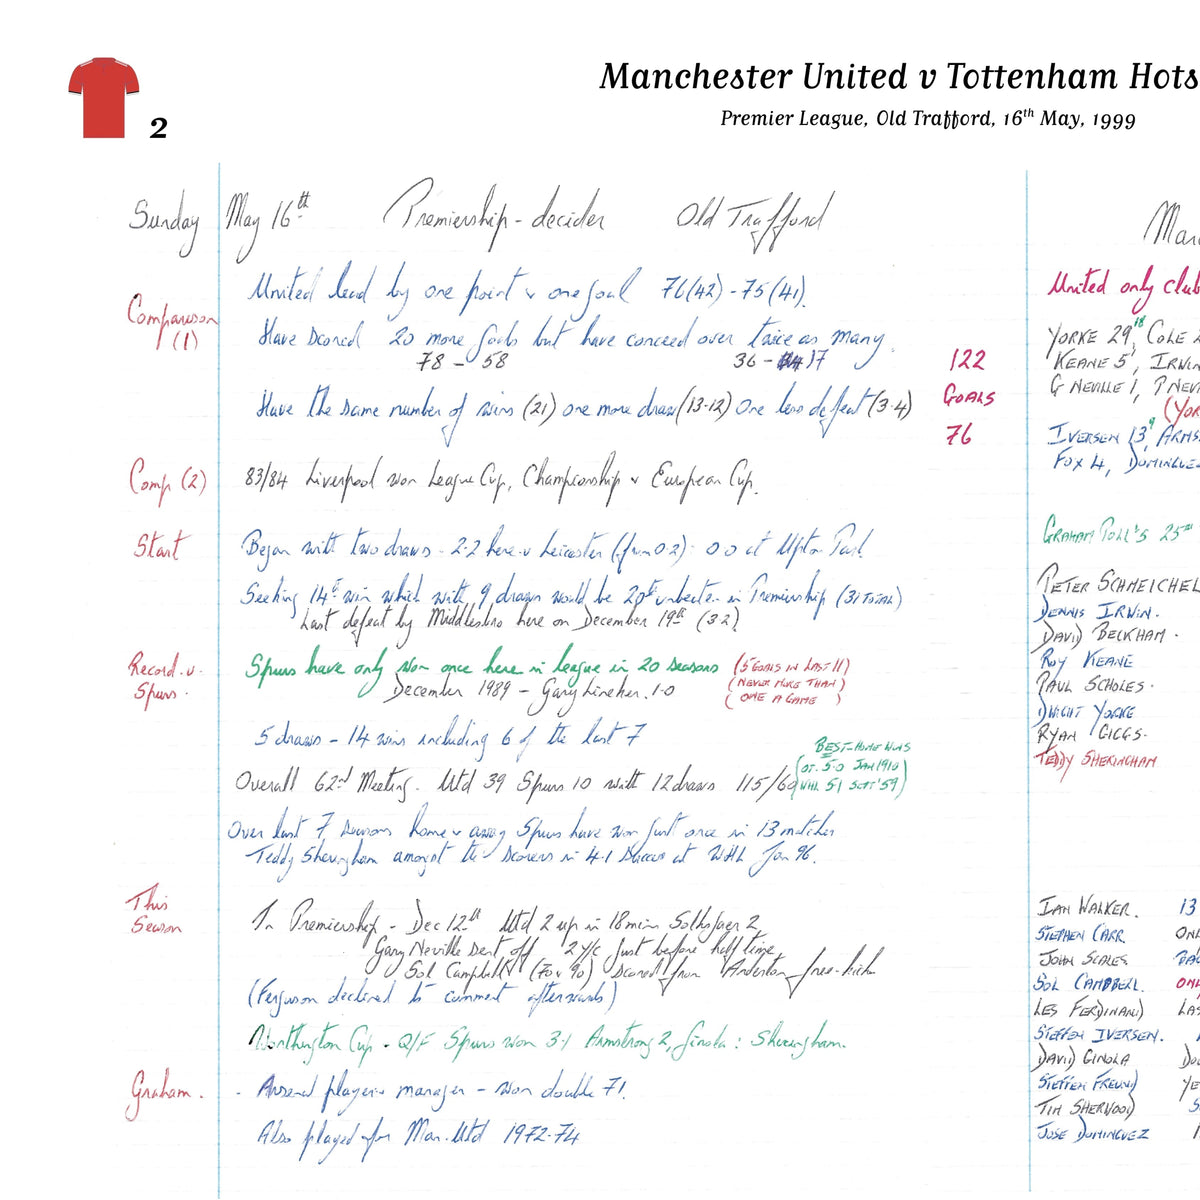 2
Manchester United v Tottenham Hots
Premier League, Old Trafford, 16th May, 1999
Sunday May 16th Premiership - decider Old Trafford
United lead by one point & one goal 76(42) - 75(41)
Comparison (1)
Have scored 20 more goals but have conceed over twice as many
78 - 58 36 - 17
Have the same number of wins (21) one more draw (13-12) One less defeat (3-4)
122
GOALS
76
Comp (2) 83/84 Liverpool won League Cup, Championship & European Cup.
Start Began with two draws - 2-2 here v Leicester (from 0-2); 0-0 at Upton Park
Seeking 14th win which with 9 draws would be 20th unbeaten in Premiership (31 TOTAL)
Last defeat by Middlesbro here on December 19th (3-2)
Record v. Spurs.
Spurs have only won once here in league in 20 seasons (5 GOALS IN LAST 11)
December 1989 - Gary Lineker. 1-0 (NEVER MORE THAN)
( ONE A GAME )
5 draws - 14 wins including 6 of the last 7
Overall 62nd Meeting. Utd 39 Spurs 10 with 12 draws 115/60
BEST HOME WINS
(OT. 5-0 JAN 1910)
(WHL 5-1 SEPT '59)
Over last 7 seasons home & away Spurs have won just once in 13 matches
Teddy Sheringham amongst the scorers in 4-1 success at WHL Jan 96.
This Season
In Premiership - Dec 12th Utd 2 up in 18 mins Solksjaer 2
Gary Neville sent off 2 Y/C just before half time
Sol Campbell (70 & 90) scored from Anderton free-kick
(Ferguson declined to comment afterwards)
Worthington Cup - Q/F Spurs won 3-1 Armstrong 2, Ginola : Sheringham.
Graham. - Arsenal player & manager - won double 71.
Also played for Man. Utd 1972-74
Man
United only club
YORKE 29 18, COLE 2
KEANE 5, IRWIN
G NEVILLE 1, P NEVI
(YOR
IVERSEN 13 9, ARMS
FOX 4, DOMINGUEZ
GRAHAM POLL'S 25TH
PETER SCHMEICHEL
DENNIS IRWIN.
DAVID BECKHAM.
ROY KEANE
PAUL SCHOLES.
DWIGHT YORKE
RYAN GIGGS.
TEDDY SHERINGHAM
IAN WALKER. 13
STEPHEN CARR. ONL
JOHN SCALES
SOL CAMPBELL. ONL
LES FERDINAND LAS
STEFFEN IVERSEN.
DAVID GINOLA DOU
STEFFEN FREUND YE
TIM SHERWOOD S
JOSE DOMINGUEZ